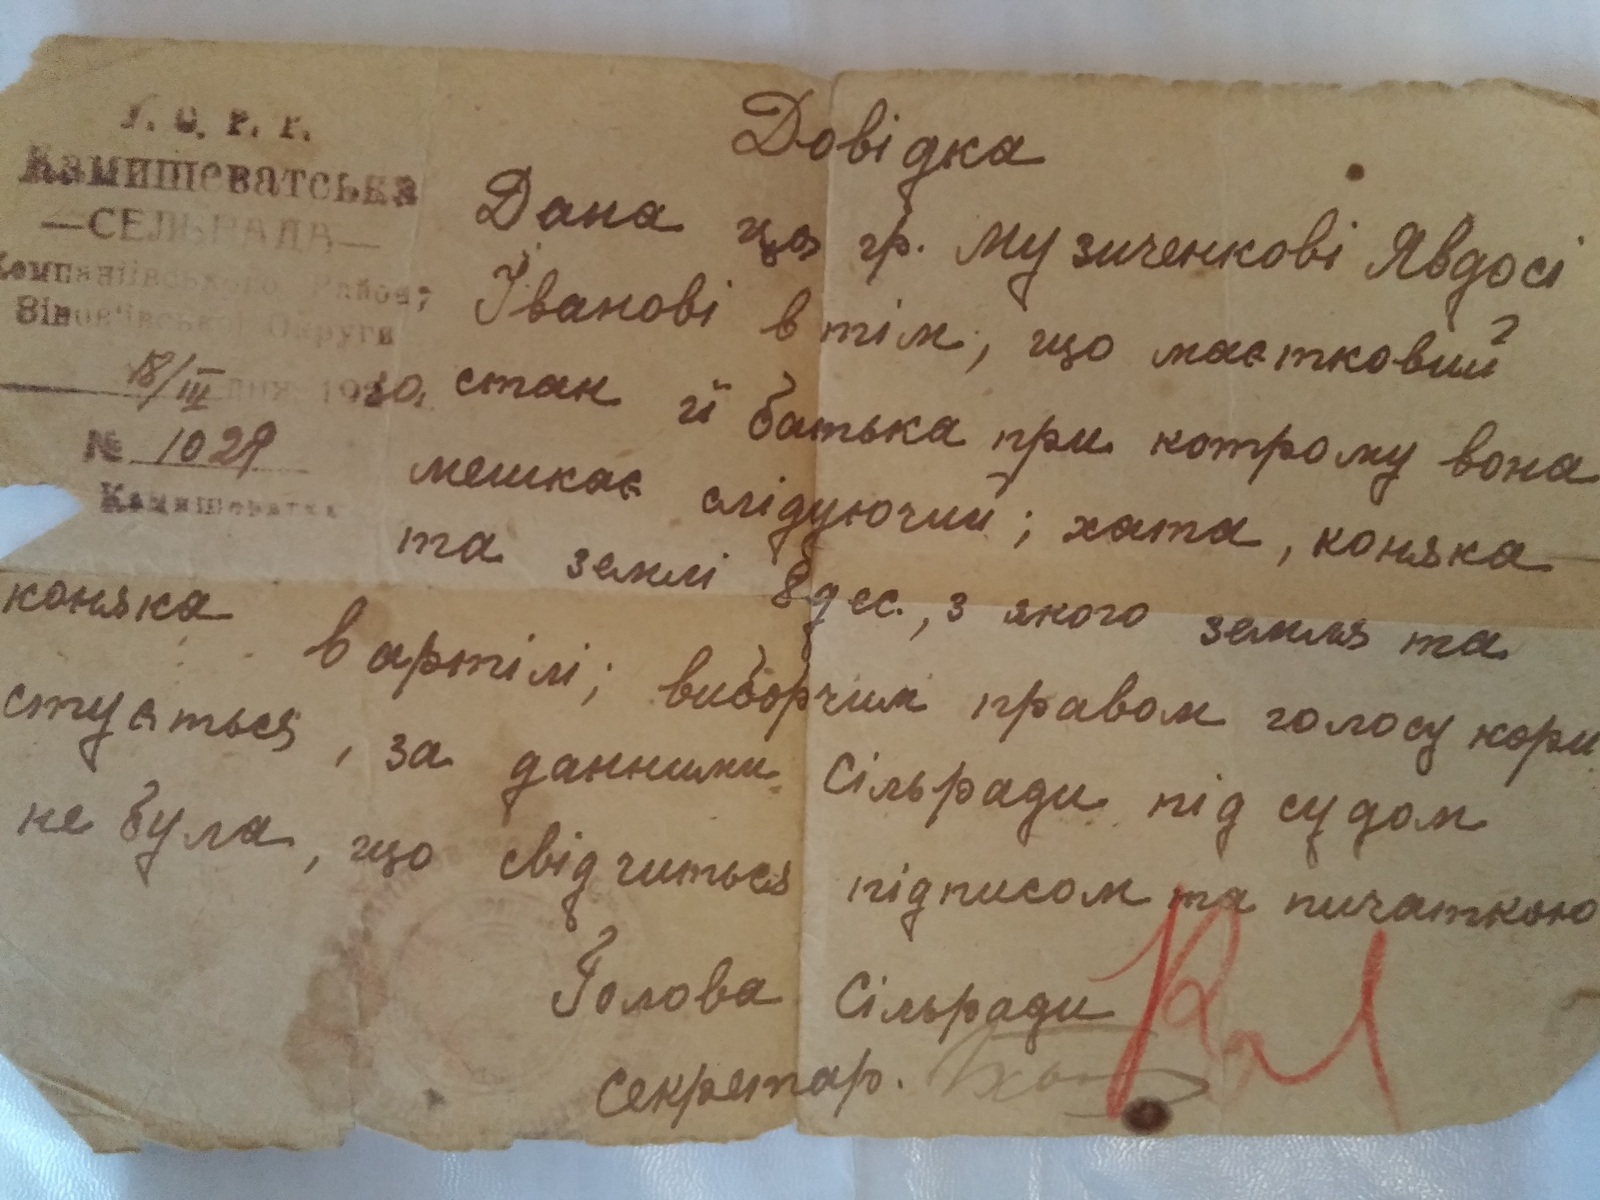 У. С. Р. Р.
Камишеватська
—СЕЛЬРАДА—
Компаніївського Району
Зіновʼївської Округи
18/III дня 1930.
№ 1029
Камишеватка
Довідка
Дана ця гр. Музиченкові Явдосі
Іванові в тім, що маєтковий
стан її батька при котрому вона
мешкає слідуючий; хата, коняка
та землі 8 дес., з якого земля та
коняка в артілі; виборчим правом голосу кори
стується, за данними Сільради під судом
не була, що свідчиться підписом та пичаткою
Голова Сільради
Секретар.